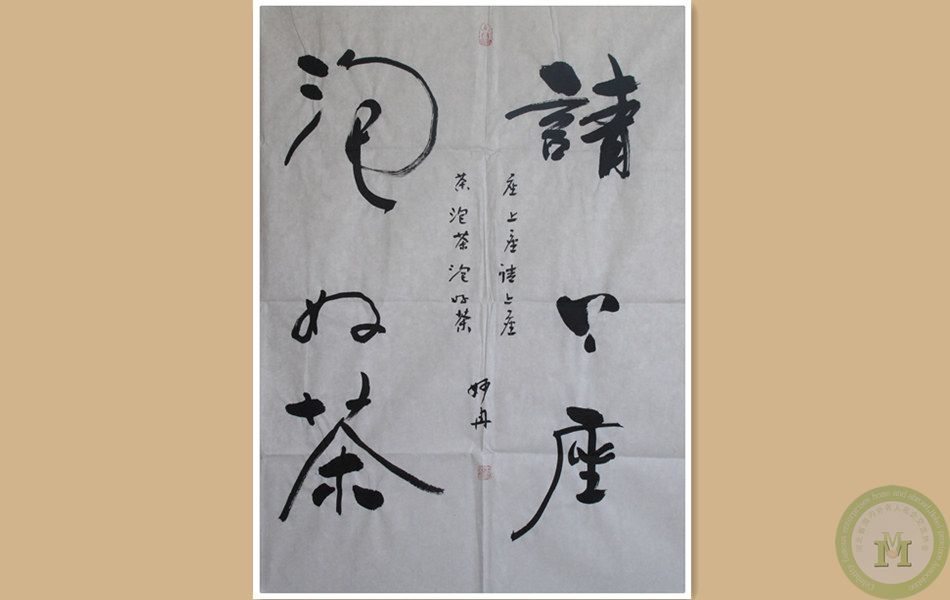 請上座
座上座請上座
茶泡茶泡好茶
泡好茶
M